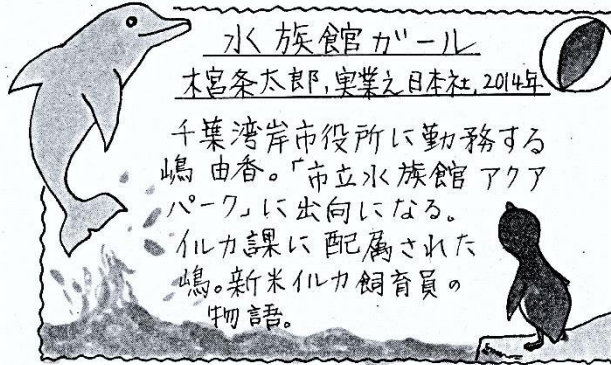 水族館ガール
木宮条太郎,実業之日本社,2014年
千葉湾岸市役所に勤務する
嶋 由香。「市立水族館 アクア
パーク」に出向になる。
イルカ課に配属された
嶋。新米イルカ飼育員の
物語。